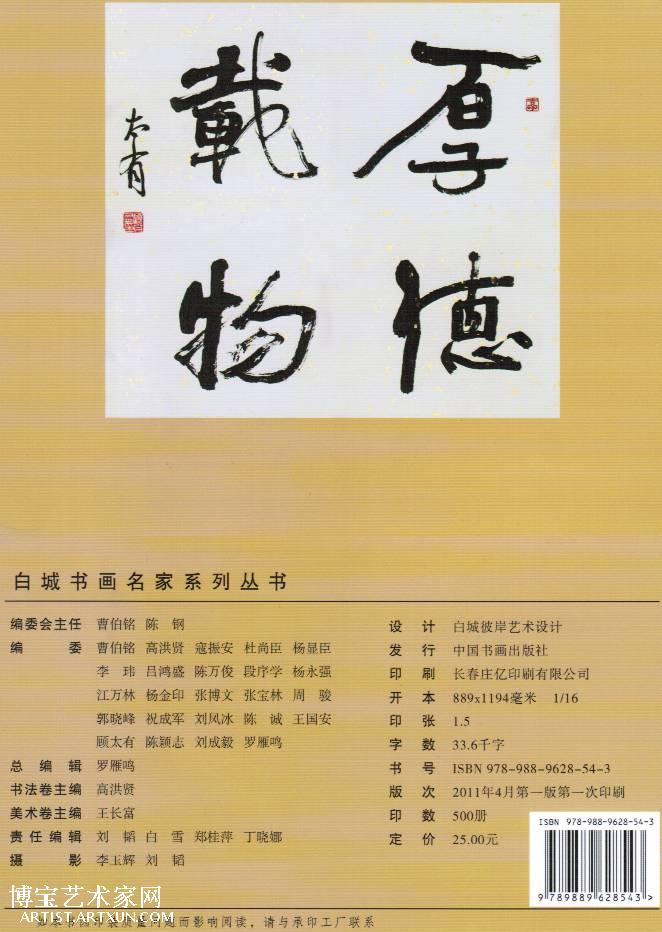 厚德
載物
太有
白城书画名家系列丛书
编委会主任 曹伯铭 陈钢
编委 曹伯铭 高洪贤 寇振安 杜尚臣 杨显臣
李玮 吕鸿盛 陈万俊 段序学 杨永强
江万林 杨金印 张博文 张宝林 周骏
郭晓峰 祝成军 刘凤冰 陈诚 王国安
顾太有 陈颖志 刘成毅 罗雁鸣
总编辑 罗雁鸣
书法卷主编 高洪贤
美术卷主编 王长富
责任编辑 刘韬 白雪 郑桂萍 丁晓娜
摄影 李玉辉 刘韬
设计 白城彼岸艺术设计
发行 中国书画出版社
印刷 长春庄亿印刷有限公司
开本 889x1194毫米 1/16
印张 1.5
字数 33.6千字
书号 ISBN 978-988-9628-54-3
版次 2011年4月第一版第一次印刷
印数 500册
定价 25.00元
ISBN 978-988-9628-54-3
9 789889 628543 >
博宝艺术家网
ARTIST.ARTXUN.COM
如果书因印装质量问题而影响阅读，请与承印工厂联系